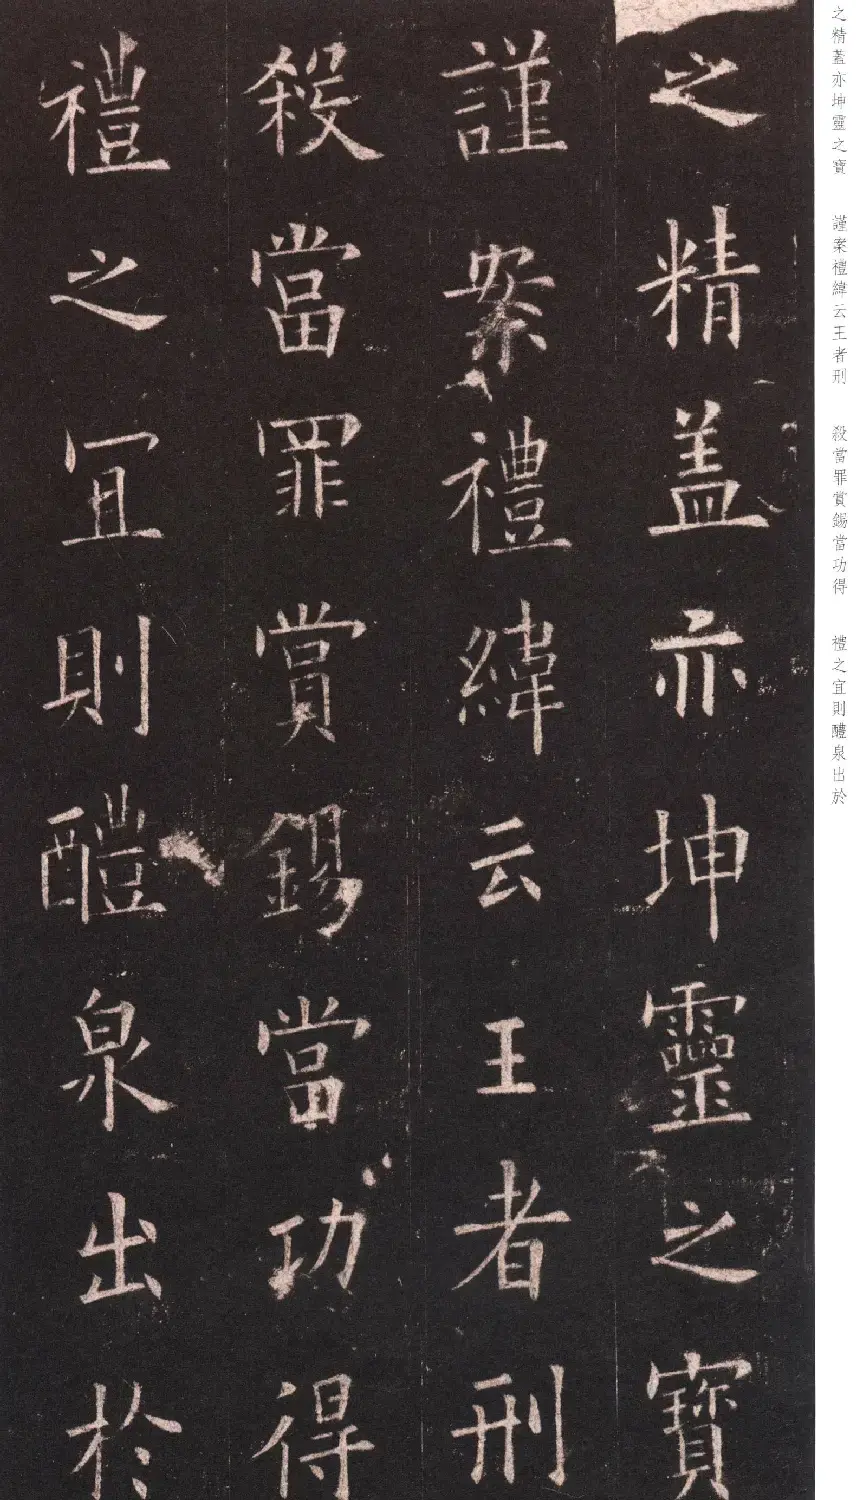 之精蓋亦坤靈之寶
謹案禮緯云王者刑
殺當罪賞錫當功得
禮之宜則醴泉出於
之精蓋亦坤靈之寶 謹案禮緯云王者刑 殺當罪賞錫當功得 禮之宜則醴泉出於